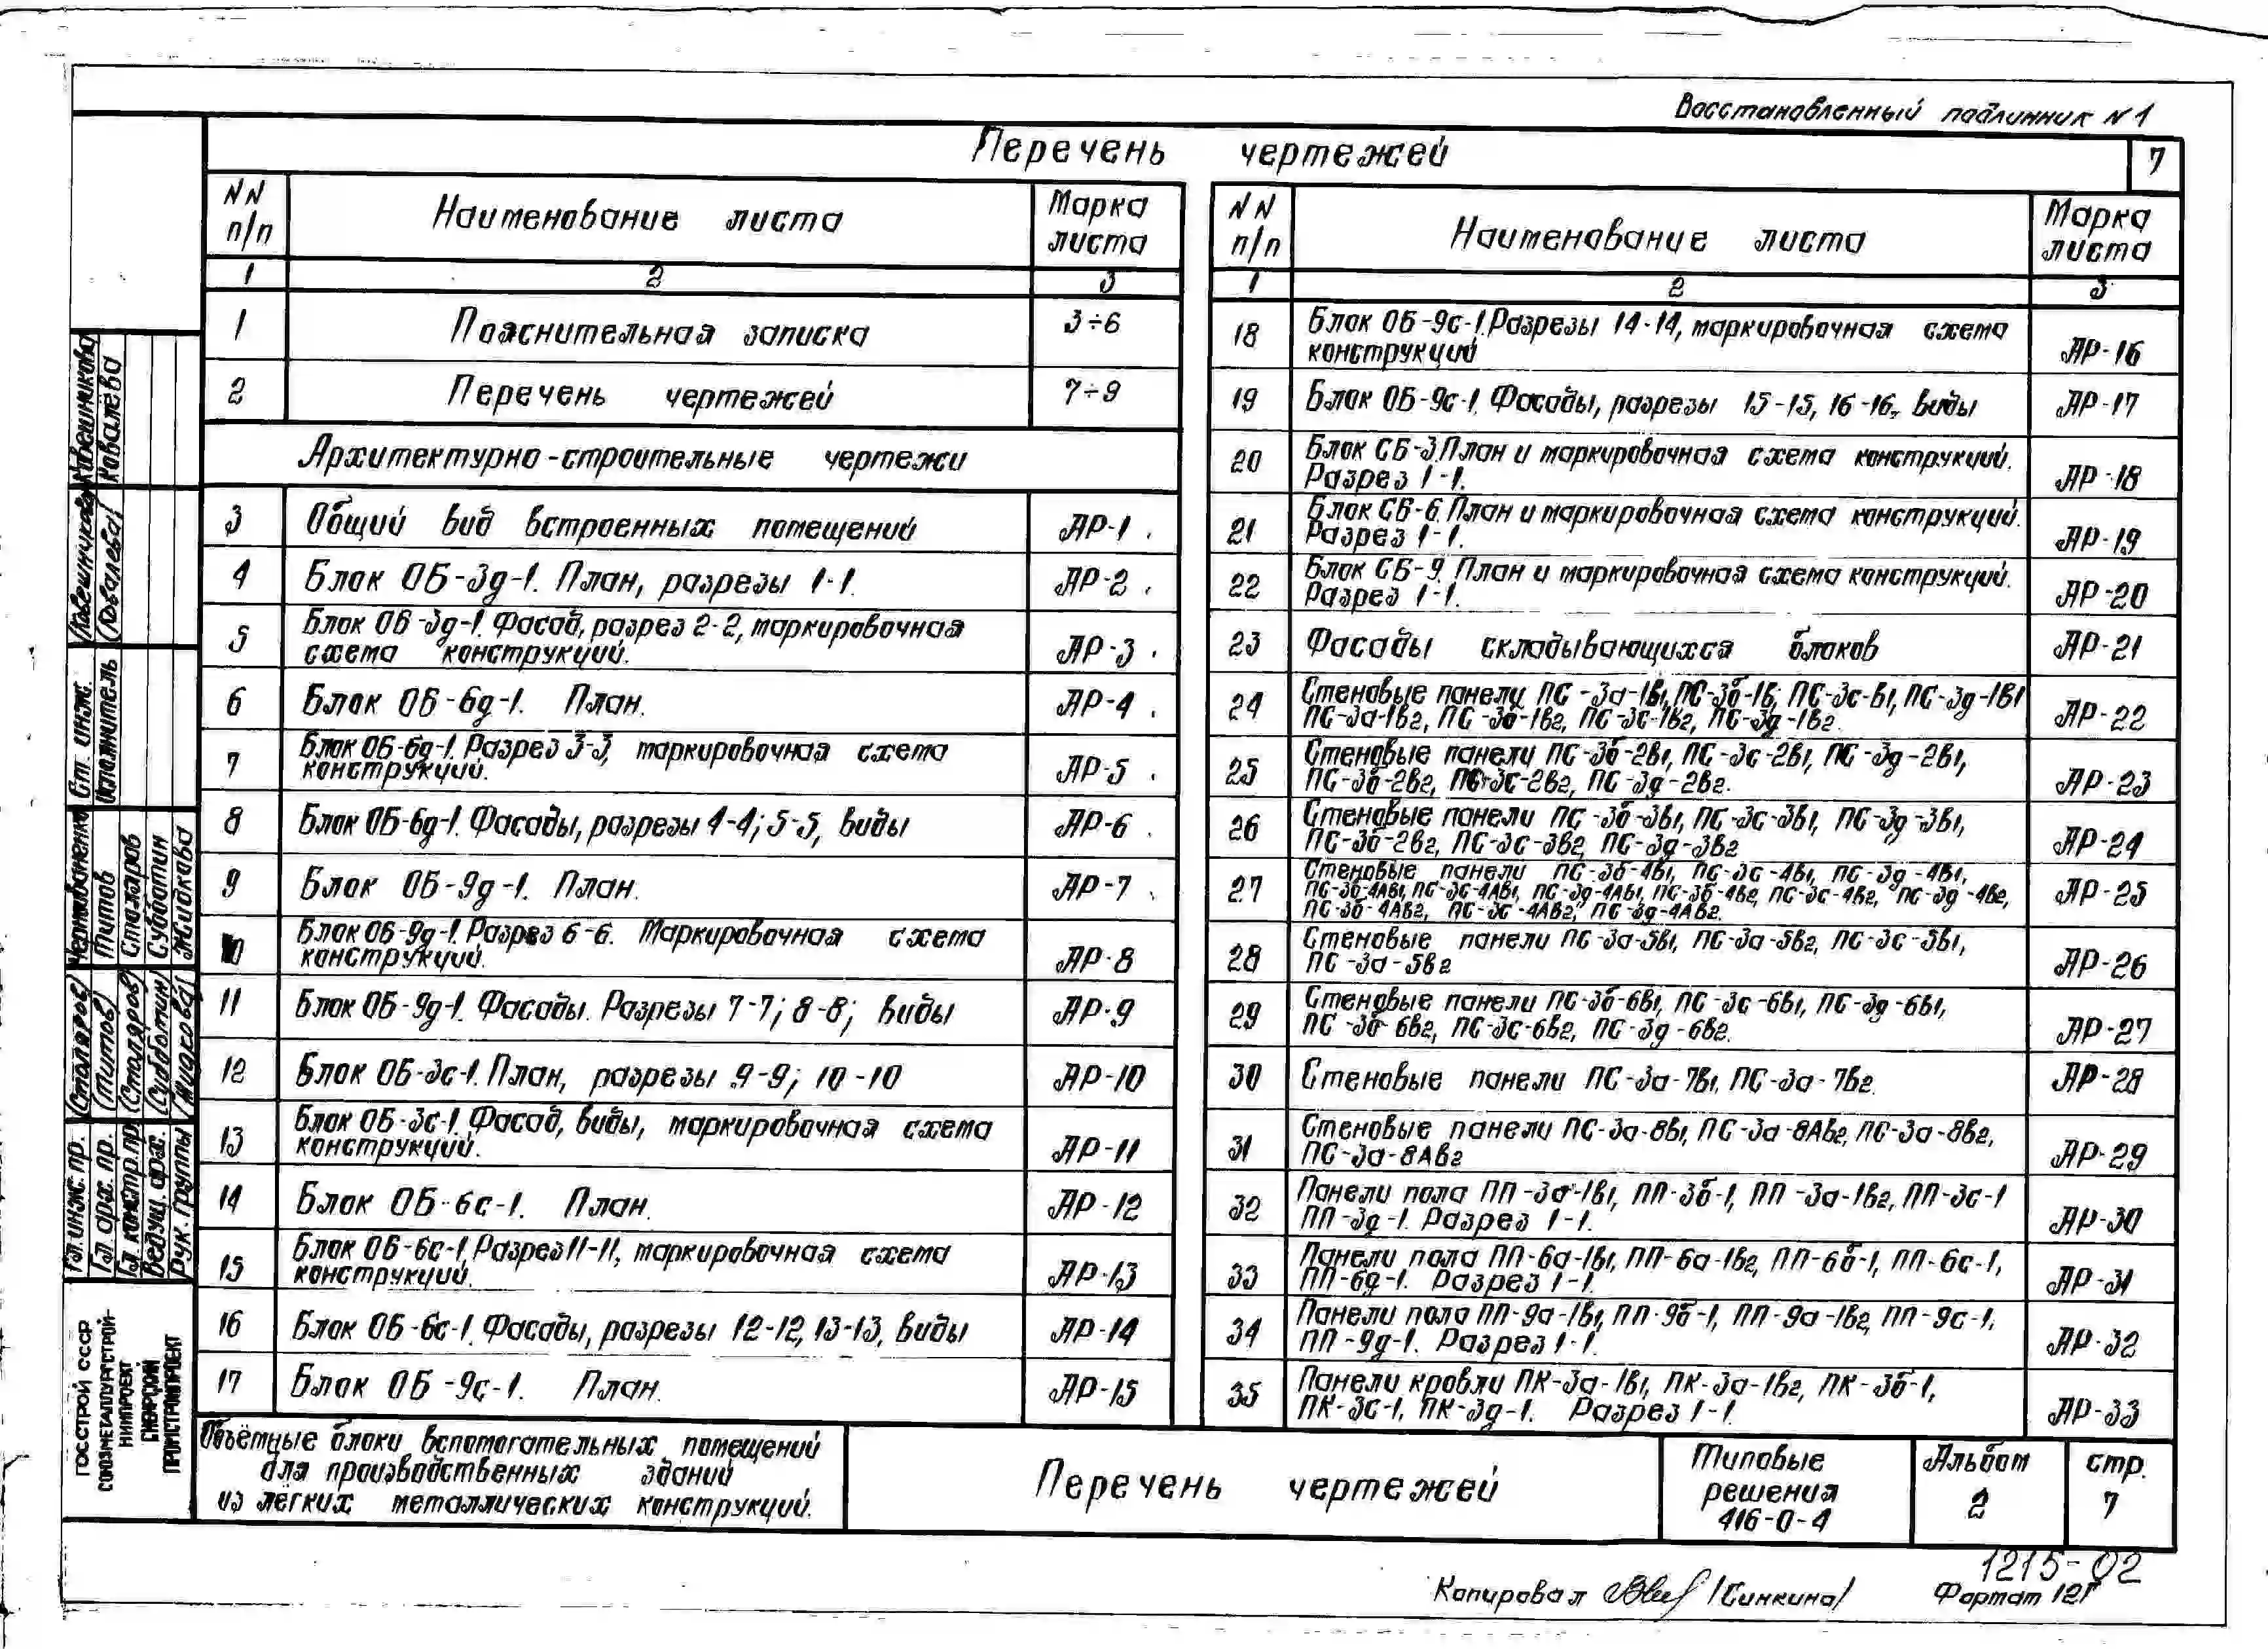 Восстановленный подлинник N1
Перечень чертежей
7
NN п/п
Наименование листа
Марка листа
1 2 3
1 Пояснительная записка 3÷6
2 Перечень чертежей 7÷9
Архитектурно-строительные чертежи
3 Общий вид встроенных помещений АР-1
4 Блок ОБ-3д-1. План, разрезы 1-1. АР-2
5 Блок ОБ-3д-1. Фасад, разрез 2-2, маркировочная
схема конструкций. АР-3
6 Блок ОБ-6д-1. План. АР-4
7 Блок ОБ-6д-1. Разрез 3-3, маркировочная схема
конструкций. АР-5
8 Блок ОБ-6д-1. Фасады, разрезы 4-4; 5-5, виды АР-6
9 Блок ОБ-9д-1. План. АР-7
10 Блок ОБ-9д-1. Разрез 6-6. Маркировочная схема
конструкций. АР-8
11 Блок ОБ-9д-1. Фасады. Разрезы 7-7; 8-8; виды АР-9
12 Блок ОБ-3с-1. План, разрезы 9-9; 10-10 АР-10
13 Блок ОБ-3с-1. Фасад, виды, маркировочная схема
конструкций. АР-11
14 Блок ОБ-6с-1. План. АР-12
15 Блок ОБ-6с-1. Разрез 11-11, маркировочная схема
конструкций. АР-13
16 Блок ОБ-6с-1. Фасады, разрезы 12-12, 13-13, виды АР-14
17 Блок ОБ-9с-1. План. АР-15
NN п/п
Наименование листа
Марка листа
1 2 3
18 Блок ОБ-9с-1. Разрезы 14-14, маркировочная схема
конструкций АР-16
19 Блок ОБ-9с-1. Фасады, разрезы 15-15, 16-16, виды АР-17
20 Блок СБ-3. План и маркировочная схема конструкций.
Разрез 1-1. АР-18
21 Блок СБ-6. План и маркировочная схема конструкций.
Разрез 1-1. АР-19
22 Блок СБ-9. План и маркировочная схема конструкций.
Разрез 1-1. АР-20
23 Фасады складывающихся блоков АР-21
24 Стеновые панели ПС-3а-1в1, ПС-3б-1в, ПС-3с-в1, ПС-3д-1в1
ПС-3а-1в2, ПС-3б-1в2, ПС-3с-1в2, ПС-3д-1в2. АР-22
25 Стеновые панели ПС-3б-2в1, ПС-3с-2в1, ПС-3д-2в1,
ПС-3б-2в2, ПС-3с-2в2, ПС-3д-2в2. АР-23
26 Стеновые панели ПС-3б-3в1, ПС-3с-3в1, ПС-3д-3в1,
ПС-3б-2в2, ПС-3с-3в2, ПС-3д-3в2 АР-24
27 Стеновые панели ПС-3б-4в1, ПС-3с-4в1, ПС-3д-4в1,
ПС-3б-4Ав1, ПС-3с-4Ав1, ПС-3д-4Ав1, ПС-3б-4в2, ПС-3с-4в2, ПС-3д-4в2,
ПС-3б-4Ав2, ПС-3с-4Ав2, ПС-3д-4Ав2. АР-25
28 Стеновые панели ПС-3а-5в1, ПС-3а-5в2, ПС-3с-5в1,
ПС-3а-5в2 АР-26
29 Стеновые панели ПС-3б-6в1, ПС-3с-6в1, ПС-3д-6в1,
ПС-3б-6в2, ПС-3с-6в2, ПС-3д-6в2. АР-27
30 Стеновые панели ПС-3а-7в1, ПС-3а-7в2. АР-28
31 Стеновые панели ПС-3а-8в1, ПС-3а-8Ав2, ПС-3а-8в2,
ПС-3а-8Ав2 АР-29
32 Панели пола ПП-3а-1в1, ПП-3б-1, ПП-3а-1в2, ПП-3с-1
ПП-3д-1. Разрез 1-1. АР-30
33 Панели пола ПП-6а-1в1, ПП-6а-1в2, ПП-6б-1, ПП-6с-1,
ПП-6д-1. Разрез 1-1. АР-31
34 Панели пола ПП-9а-1в1, ПП-9б-1, ПП-9а-1в2, ПП-9с-1,
ПП-9д-1. Разрез 1-1. АР-32
35 Панели кровли ПК-3а-1в1, ПК-3а-1в2, ПК-3б-1,
ПК-3с-1, ПК-3д-1. Разрез 1-1. АР-33
Ст. инж. (Кавешникова) Кавешникова
Исполнитель (Ковалева) Ковалёва
Гл. инж. пр. (Столяров) Черноиваненко
Гл. арх. пр. (Титов) Титов
Гл. констр. пр. (Столяров) Столяров
Ведущ. арх. (Субботин) Субботин
Рук. группы (Жидкова) Жидкова
ГОССТРОЙ СССР
СОЮЗМЕТАЛЛУРГСТРОЙ-
НИИПРОЕКТ
СИБИРСКИЙ
ПРОМСТРОЙПРОЕКТ
Объёмные блоки вспомогательных помещений
для производственных зданий
из лёгких металлических конструкций.
Перечень чертежей
Типовые
решения
416-0-4
Альбом
2
стр.
7
1215-02
Копировал /Синкина/
Формат 12Г